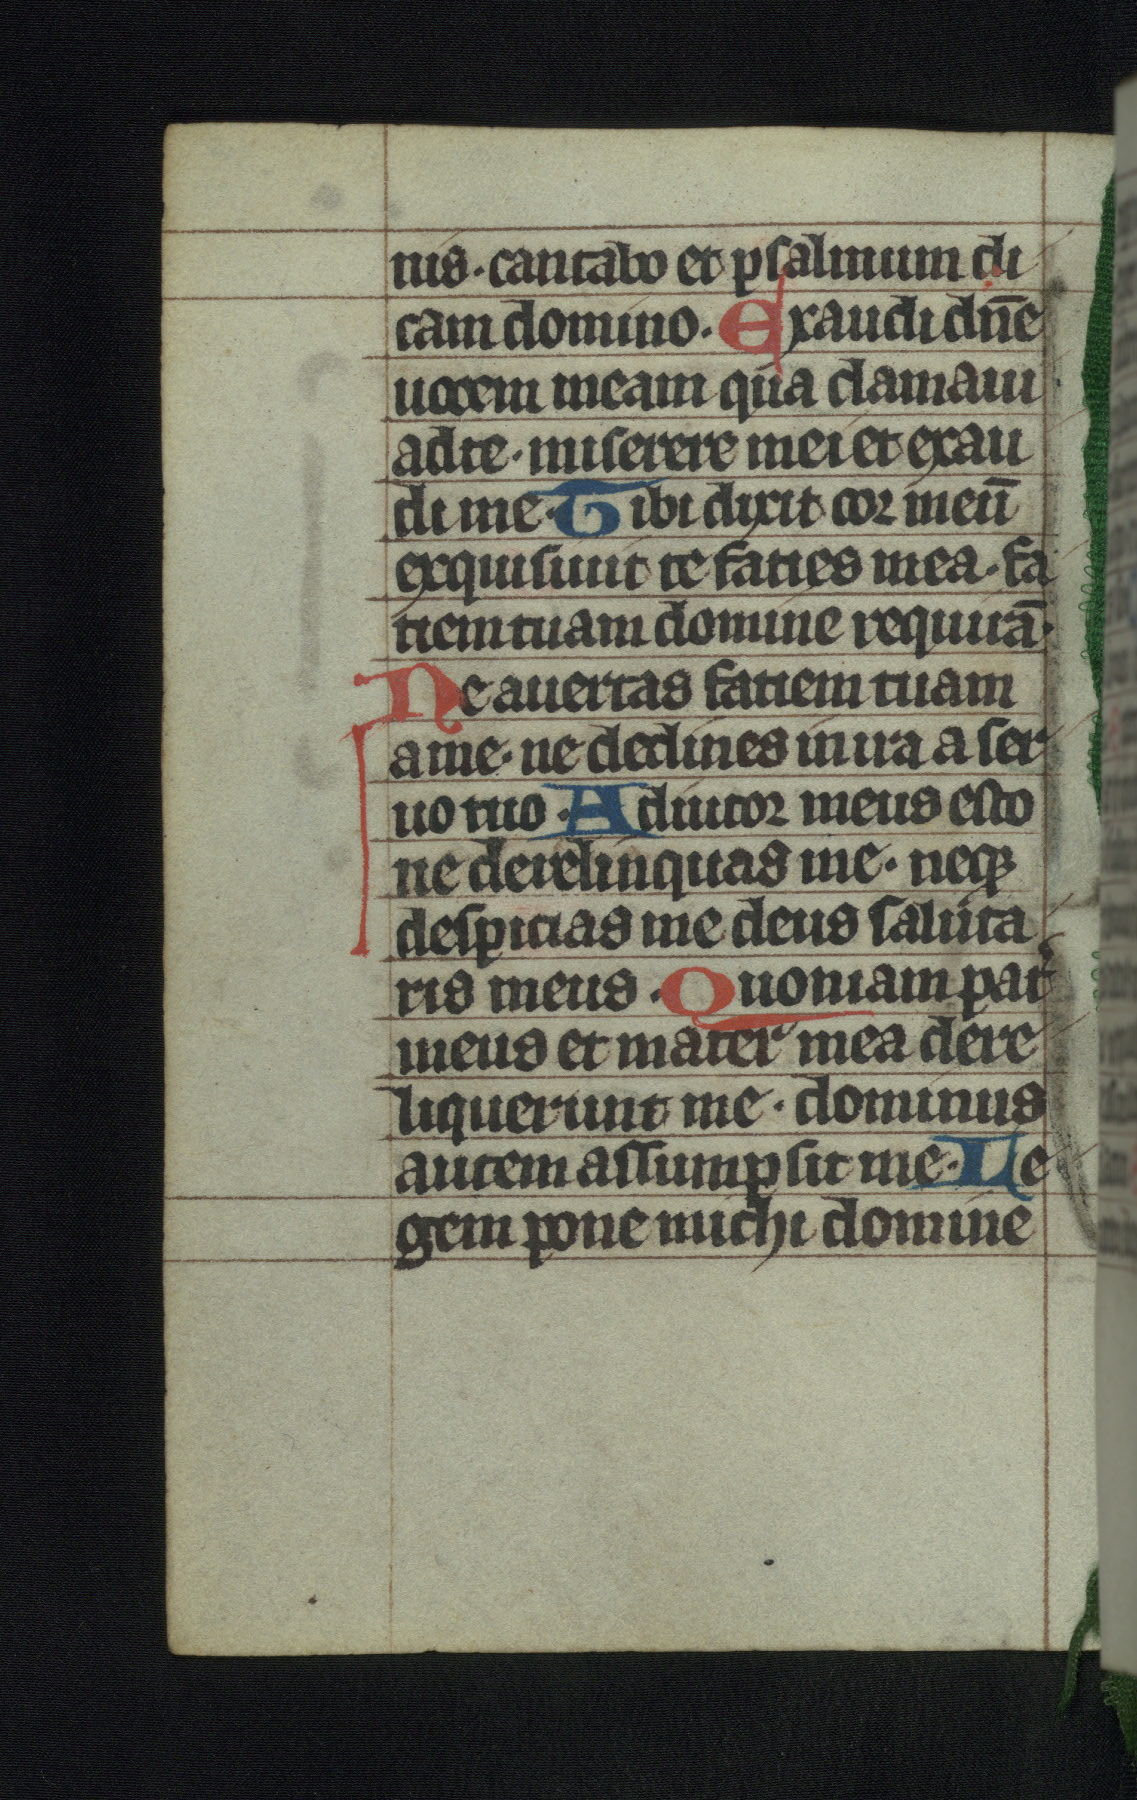 nis · cantabo et psalmum di
cam domino · Exaudi dn̄e
uocem meam qua clamaui
ad te · miserere mei et exau
di me · Tibi dixit cor meū
exquisiuit te faties mea · fa
tiem tuam domine requirā ·
Ne auertas fatiem tuam
a me · ne declines in ira a ser
uo tuo · Adiutor meus esto
ne derelinquas me · neqꝫ
despicias me deus saluta
ris meus · Quoniam pat͛
meus et mater mea dere
liquerunt me · dominus
autem assumpsit me · Le
gem pone michi domine